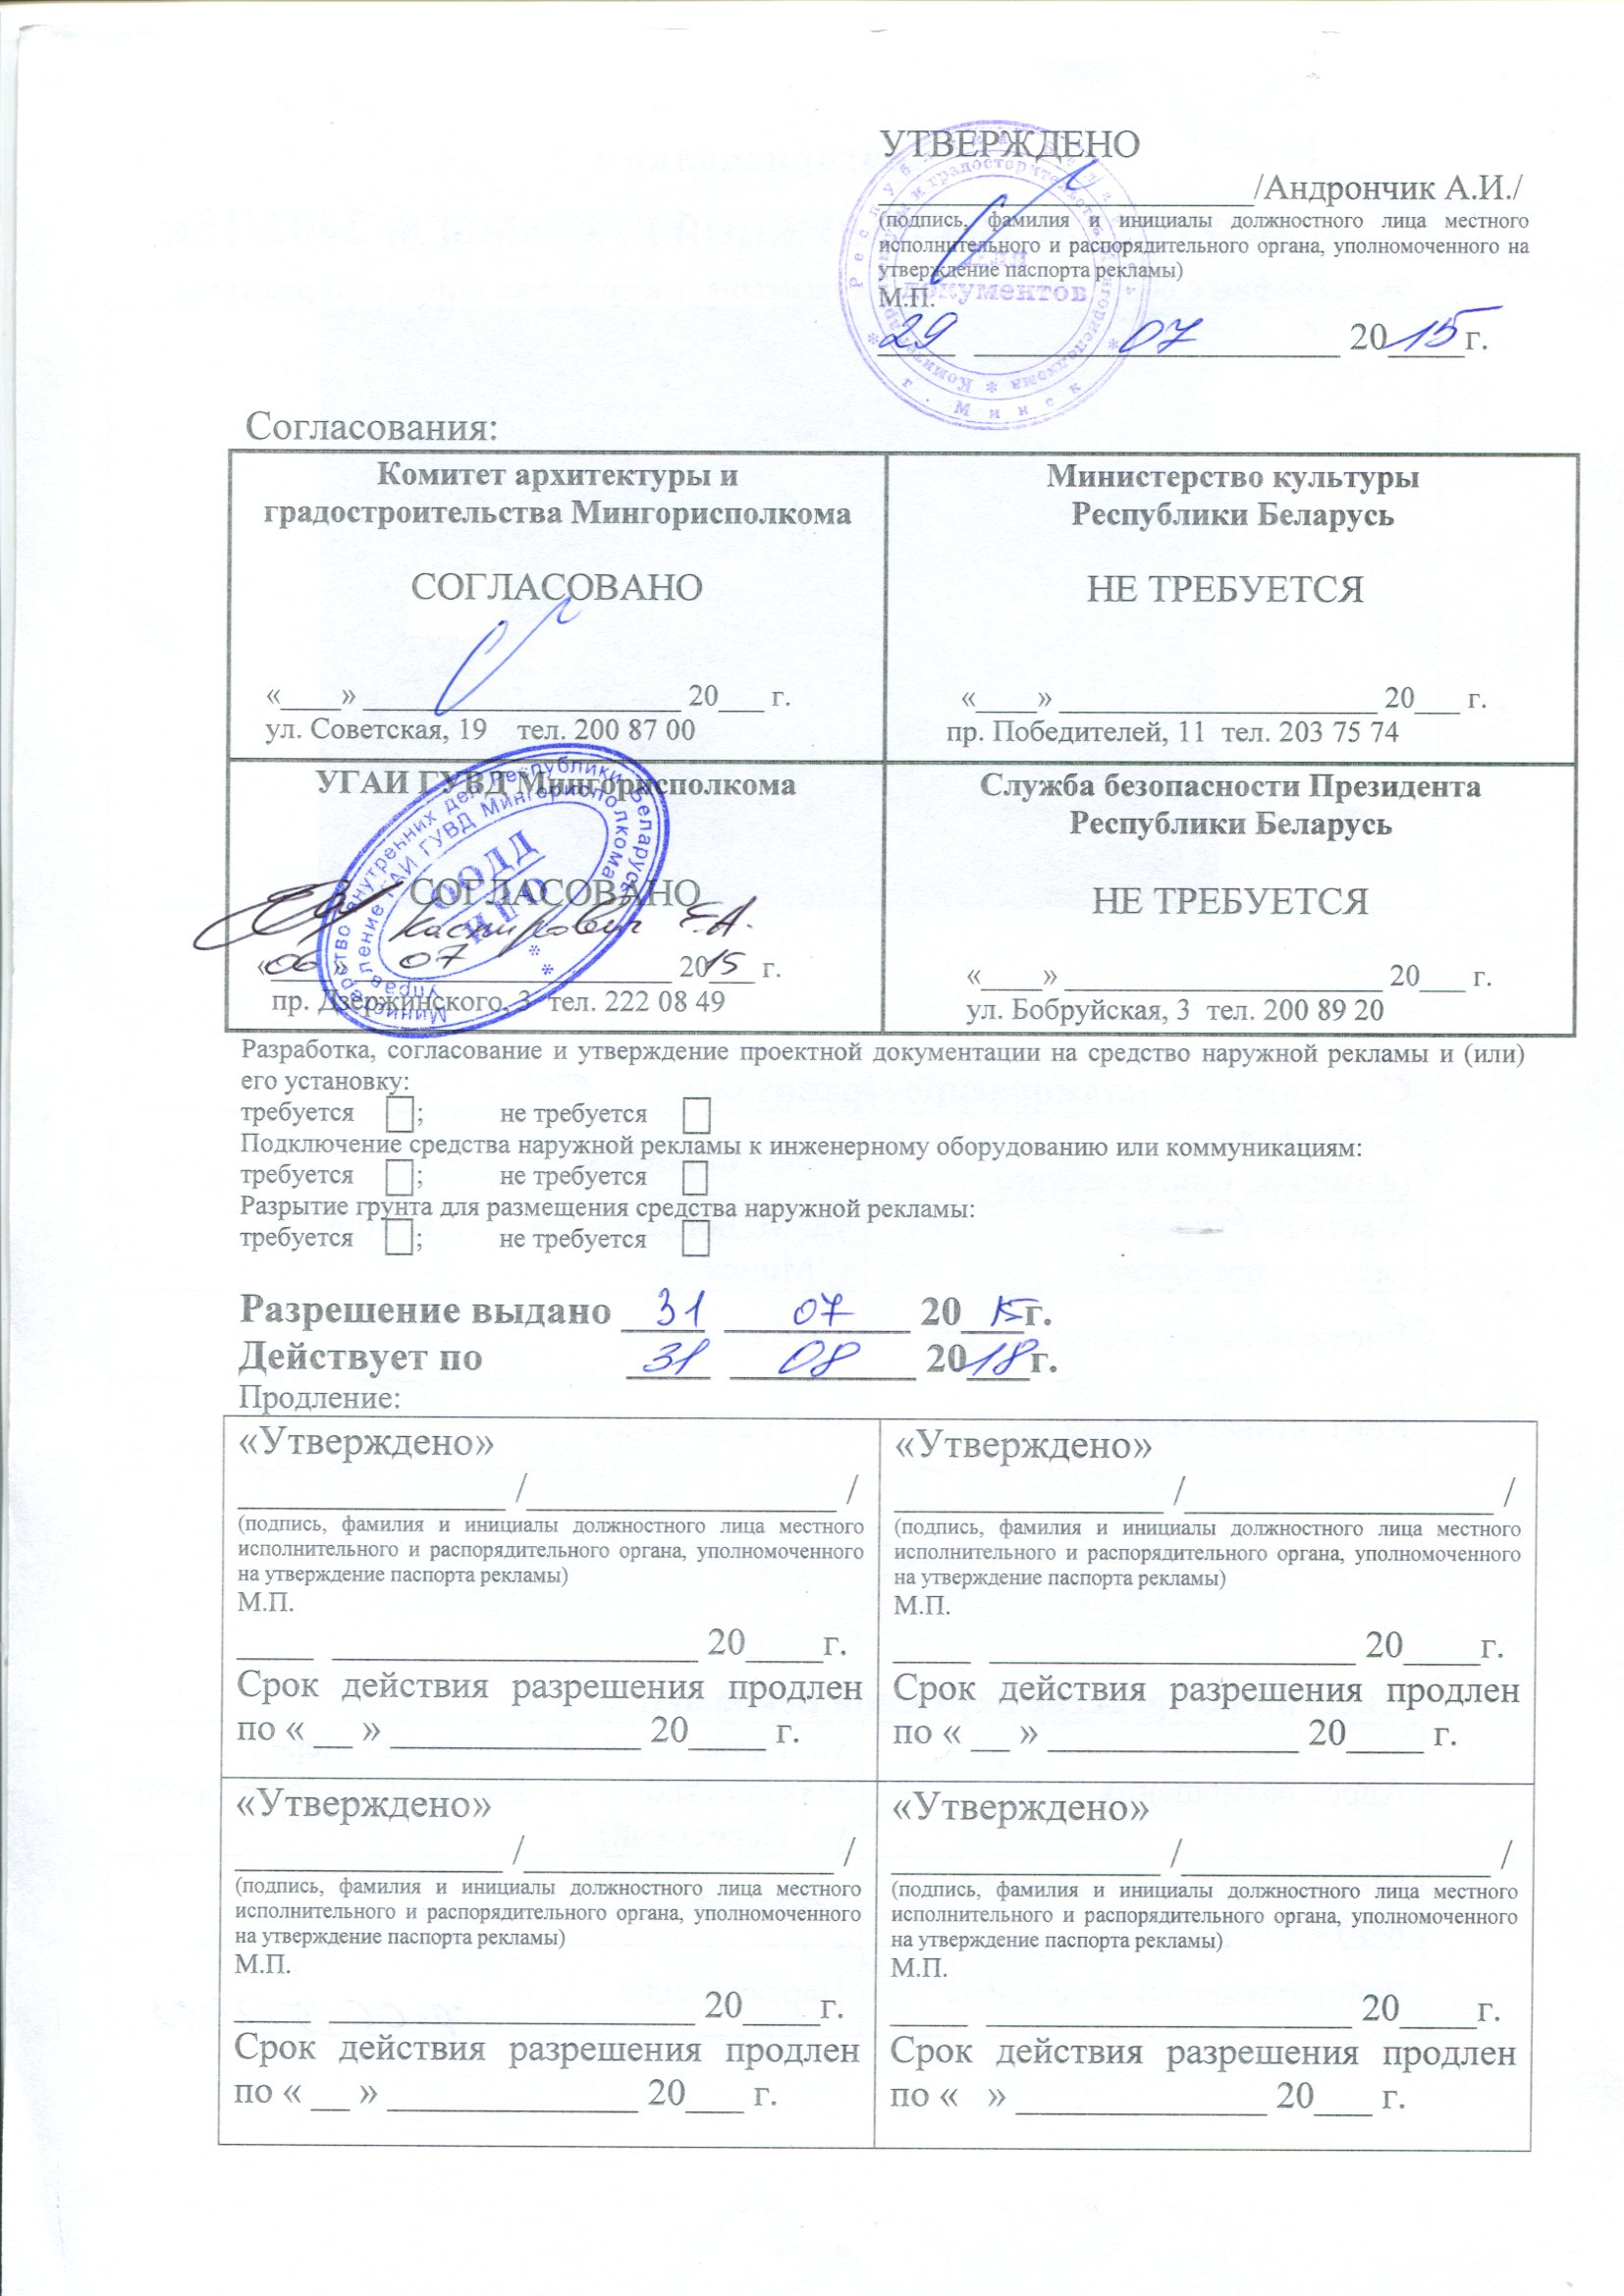 УТВЕРЖДЕНО
____________________/Андрончик А.И./
(подпись, фамилия и инициалы должностного лица местного
исполнительного и распорядительного органа, уполномоченного на
утверждение паспорта рекламы)
М.П.
29 07 2015г.
Республика Беларусь
г. Минск
документов
Согласования:
Комитет архитектуры и
градостроительства Мингорисполкома
СОГЛАСОВАНО
«____» _____________________ 20___ г.
ул. Советская, 19 тел. 200 87 00
Министерство культуры
Республики Беларусь
НЕ ТРЕБУЕТСЯ
«____» _____________________ 20___ г.
пр. Победителей, 11 тел. 203 75 74
УГАИ ГУВД Мингорисполкома
СОГЛАСОВАНО
Каспирович Е.А.
«06» 07 2015 г.
пр. Дзержинского, 3 тел. 222 08 49
Министерство внутренних дел Республики Беларусь
Управление ГАИ ГУВД Мингорисполкома
ООДД
Служба безопасности Президента
Республики Беларусь
НЕ ТРЕБУЕТСЯ
«____» _____________________ 20___ г.
ул. Бобруйская, 3 тел. 200 89 20
Разработка, согласование и утверждение проектной документации на средство наружной рекламы и (или)
его установку:
требуется ; не требуется
Подключение средства наружной рекламы к инженерному оборудованию или коммуникациям:
требуется ; не требуется
Разрытие грунта для размещения средства наружной рекламы:
требуется ; не требуется
Разрешение выдано 31 07 2015г.
Действует по 31 08 2018г.
Продление:
«Утверждено»
______________ /________________ /
(подпись, фамилия и инициалы должностного лица местного
исполнительного и распорядительного органа, уполномоченного
на утверждение паспорта рекламы)
М.П.
____ ___________________ 20____г.
Срок действия разрешения продлен
по « __ » _____________ 20____ г.
«Утверждено»
______________ /________________ /
(подпись, фамилия и инициалы должностного лица местного
исполнительного и распорядительного органа, уполномоченного
на утверждение паспорта рекламы)
М.П.
____ ___________________ 20____г.
Срок действия разрешения продлен
по « __ » _____________ 20____ г.
«Утверждено»
______________ /________________ /
(подпись, фамилия и инициалы должностного лица местного
исполнительного и распорядительного органа, уполномоченного
на утверждение паспорта рекламы)
М.П.
____ ___________________ 20____г.
Срок действия разрешения продлен
по « __ » _____________ 20___ г.
«Утверждено»
______________ /________________ /
(подпись, фамилия и инициалы должностного лица местного
исполнительного и распорядительного органа, уполномоченного
на утверждение паспорта рекламы)
М.П.
____ ___________________ 20____г.
Срок действия разрешения продлен
по « » _____________ 20___ г.